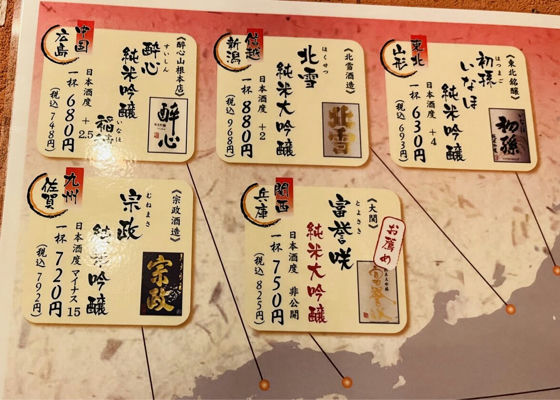 《東北銘醸》
はつまご
初孫
いなほ
純米吟醸
日本酒度 +4
一杯 630円
(税込 693円)
東北
山形
初孫
《北雪酒造》
ほくせつ
北雪
純米大吟醸
日本酒度 +2
一杯 880円
(税込 968円)
信越
新潟
北雪
《醉心山根本店》
すいしん
醉心
純米吟醸
いなほ
稲穂
日本酒度 +2.5
一杯 680円
(税込 748円)
中国
広島
醉心
《大関》
とよさき
富誉咲
純米大吟醸
日本酒度 非公開
一杯 750円
(税込 825円)
お薦め
関西
兵庫
《宗政酒造》
むねまさ
宗政
純米吟醸
日本酒度 マイナス15
一杯 720円
(税込 792円)
九州
佐賀
宗政